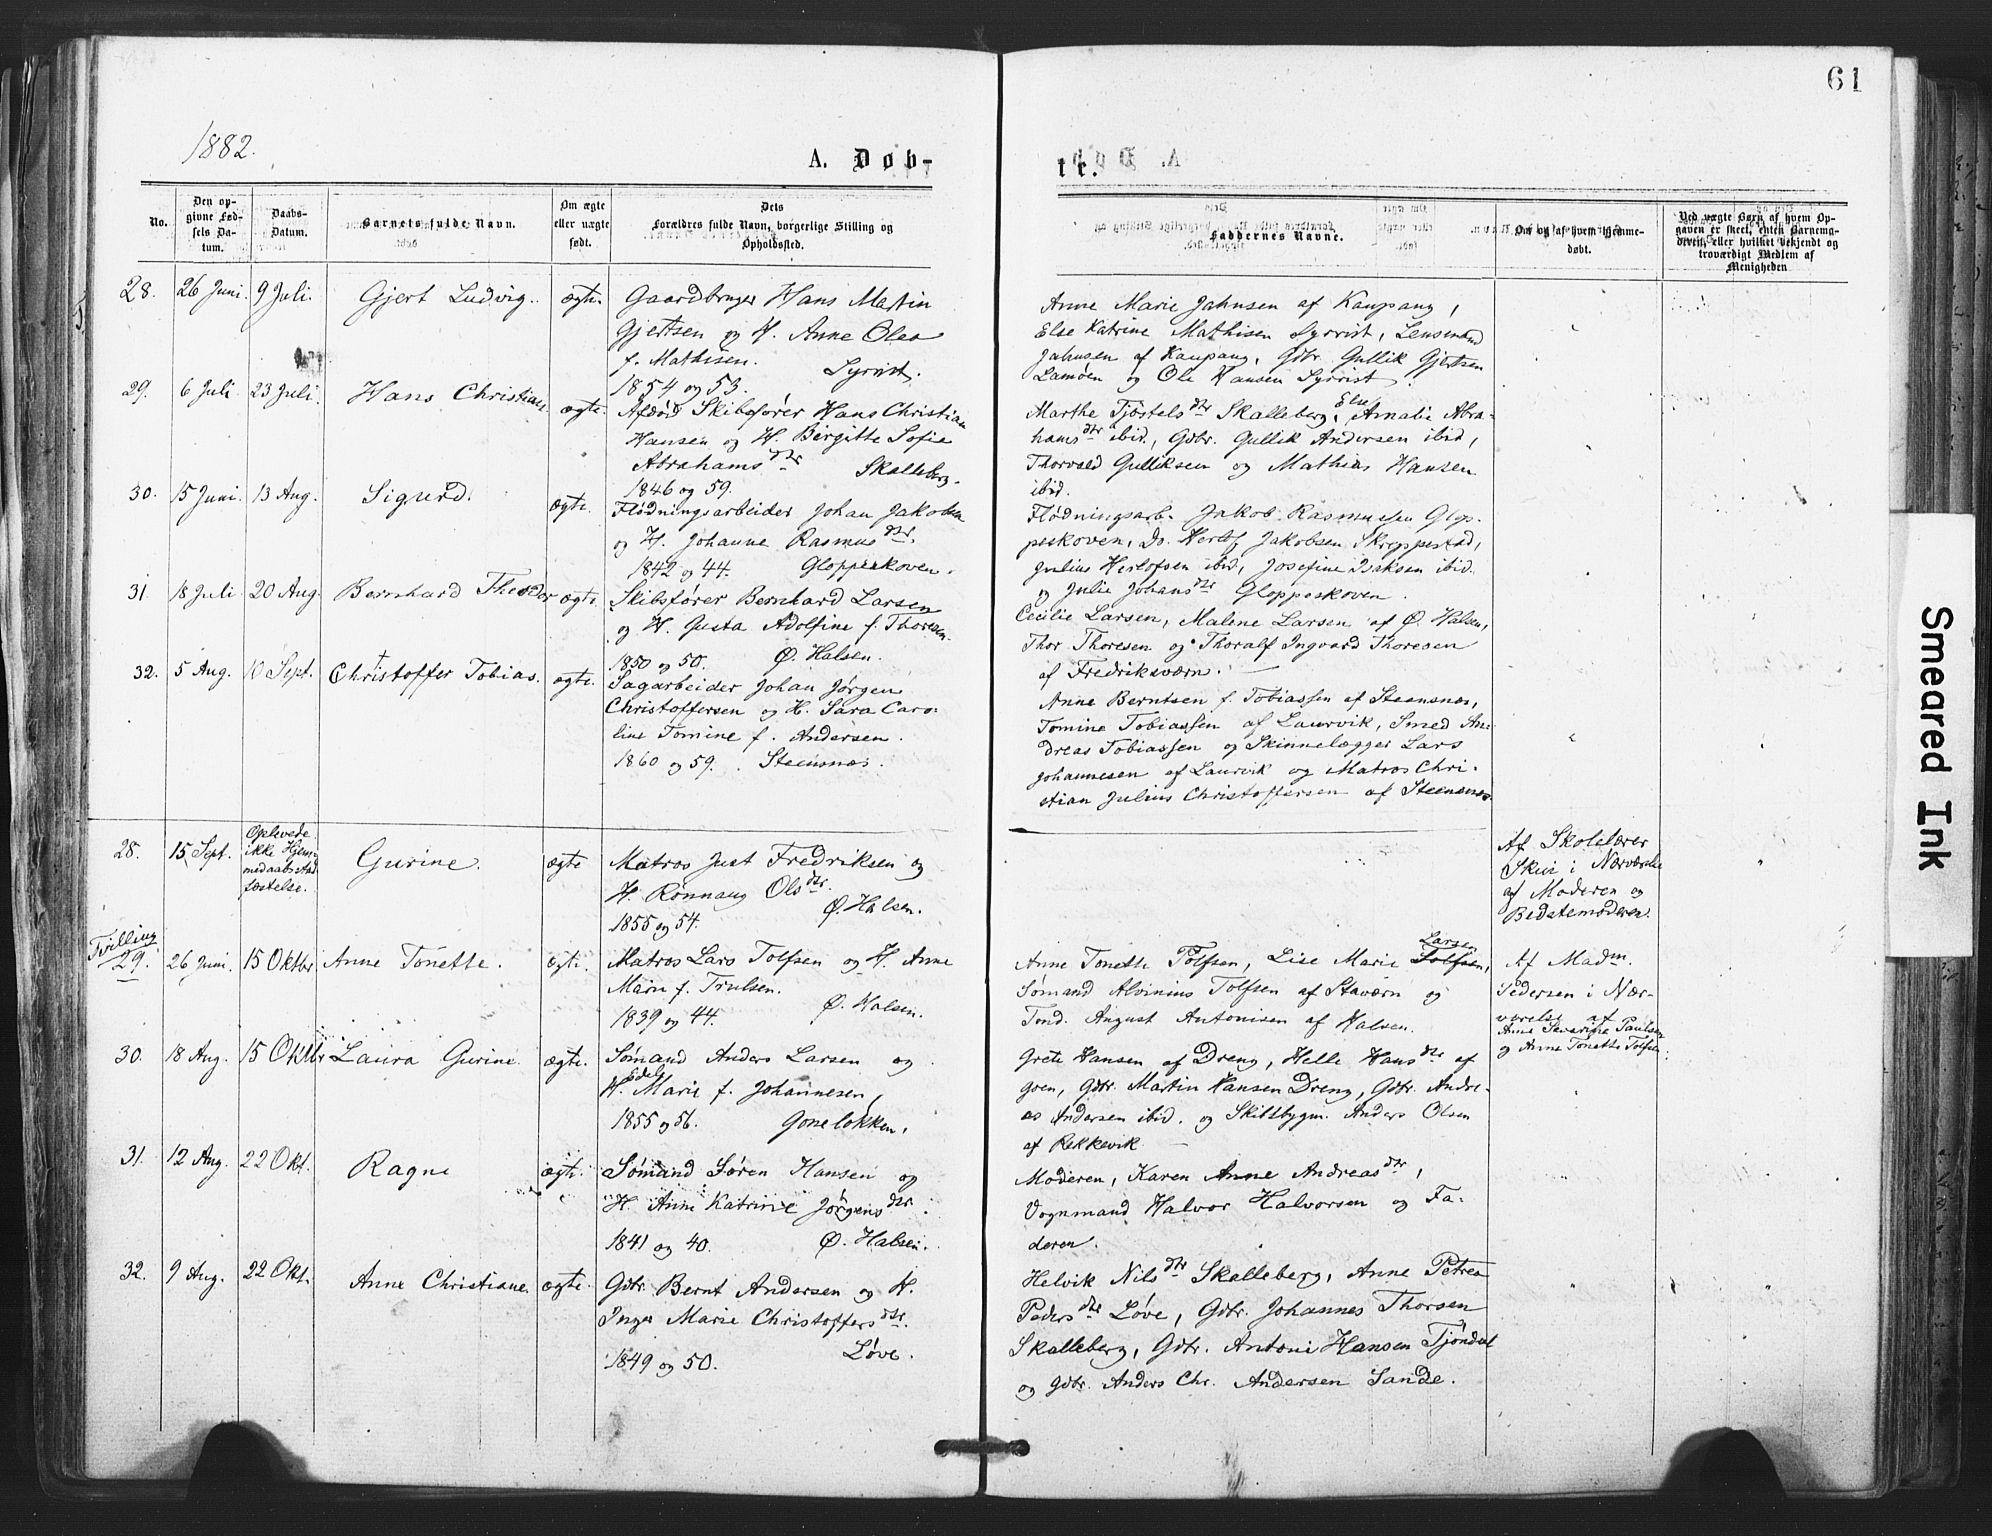 61
1882.
A. Døb-
te.
No.
Den op-
givne Fød-
sels Da-
tum.
Daabs-
Datum.
Barnets fulde Navn.
Om ægte
eller uægte
født.
Dets
Forældres fulde Navn, borgerlige Stilling og
Opholdssted.
Faddernes Navne.
Om og af hvem hjemme-
døbt.
Ved uægte Børn af hvem Op-
gaven er skeet, enten Barnemo-
deren, eller hvilket bekjendt og
troværdigt Medlem af
Menigheden
28. 26 Juni. 9 Juli. Gjert Ludvig. ægte. Gaardbruger Hans Martin
Gjertsen og H. Anne Olea
f. Mathisen. Syrrist.
1854 og 53.
Anne Marie Jahnsen af Kaupang,
Else Katrine Mathisen Syrrist, Lensmand
Jahnsen af Kaupang, Gdbr. Gullik Gjertsen
Lamøen og Ole Hansen Syrrist.
29. 6 Juli 23 Juli. Hans Christian. ægte. Skibsfører Hans Christian
Hansen og H. Birgitte Sofie
Abrahamsdtr Skalleberg.
1846 og 59.
Marthe Tjøstelsdtr Skalleberg, Else Amalie Abra-
hamsdtr ibid., Gdbr. Gullik Andersen ibid,
Thorvald Gulliksen og Mathias Hansen
ibid.
30. 15 Juni. 13 Aug. Sigurd. ægte. Flødningsarbeider Johan Jakobsen
og H. Johanne Rasmusdtr.
1842 og 44. Gloppeskoven.
Flødningsarb. Jakob Rasmussen Glop-
peskoven, Do. Herlof Jakobsen Skreppestad,
Julius Herlofsen ibid, Josefine Isaksen ibid
og Julie Johansdtr Gloppeskoven.
31. 18 Juli. 20 Aug. Bernhard Theodor ægte. Skibsfører Bernhard Larsen
og H. Gusta Adolfine f. Thoresen.
1850 og 50. Ø. Halsen.
Cecilie Larsen, Malene Larsen af Ø. Halsen,
Thor Thoresen og Thoralf Ingvard Thoresen
af Fredriksværn.
32. 5 Aug. 10 Sept. Christoffer Tobias. ægte. Sagarbeider Johan Jørgen
Christoffersen og H. Sara Caro-
line Tomine f. Andersen.
1860 og 59. Steensnæs.
Anne Berntsen f. Tobiassen af Steensnæs,
Tomine Tobiassen af Laurvik, Smed An-
dreas Tobiassen og Skinnelægger Lars
Johannesen af Laurvik og Matros Chri-
stian Julius Christoffersen af Steensnæs.
28. 15 Sept. Oplevede
ikke Hjem-
medaabs Stad-
fæstelse. Gurine. ægte Matros Just Fredriksen og
H. Rønnaug Olsdtr.
1855 og 54. Ø. Halsen.
Af Skolelærer
Skui i Nærværelse
af Moderen og
Bedstemoderen.
Tvilling
29. 26 Juni. 15 Oktbr Anne Tonette. ægte. Matros Lars Tolfsen og H. Anne
Marie f. Trulsen.
1839 og 44. Ø. Halsen.
Anne Tonette Tolfsen, Lise Marie Tolfsen, Larsen
Sømand Alvinius Tolfsen af Staværn og
Tønd. August Antonisen af Halsen.
Af Madm.
Pedersen i Nær-
værelse af
Anne Severine Paulsen
og Anne Tonette Tolfsen.
30. 18 Aug. 15 Oktbr Laura Gurine ægte. Sømand Anders Larsen og
H. Edel Marie f. Johannesen,
1855 og 56. Goneløkken.
Grete Hansen af Dreng, Helle Hansdtr af
Gren, Gdbr. Martin Hansen Dreng, Gdbr. Andre-
as Andersen ibid. og Skibsbygm. Anders Olsen
af Rekkevik
31. 12 Aug. 22 Okt. Ragne ægte. Sømand Søren Hansen og
H. Anne Katrine Jørgensdtr.
1841 og 40. Ø. Halsen.
Moderen, Karen Anne Andreasdtr,
Vognmand Halvor Halvorsen og Fa-
deren.
32. 9 Aug. 22 Okt. Anne Christiane. ægte. Gdbr. Bernt Andersen og H.
Inger Marie Christoffersdtr.
1849 og 50. Løve.
Helvik Nilsdtr Skalleberg, Anne Petrea
Pedersdtr Løve, Gdbr. Johannes Thorsen
Skalleberg, Gdbr. Antoni Hansen Tjøndal
og Gdbr. Anders Chr. Andersen Sande.
Smeared Ink